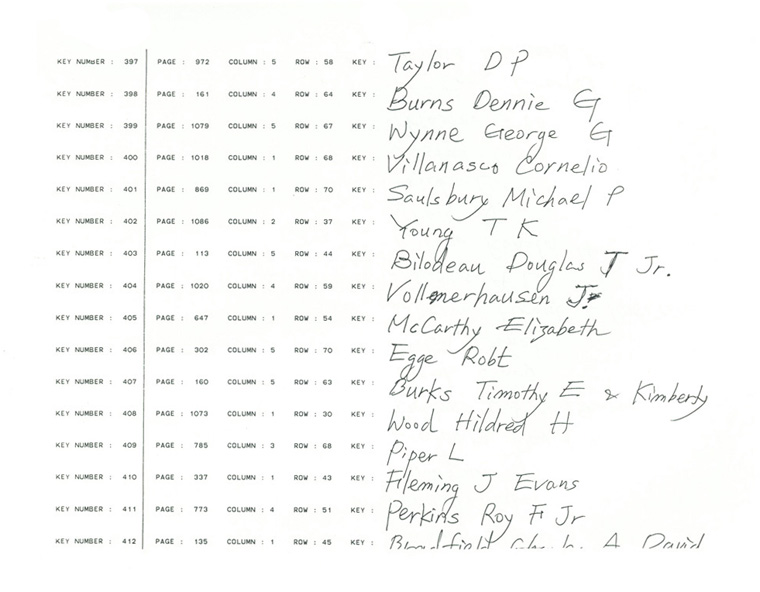 KEY NUMBER : 397 PAGE : 972 COLUMN : 5 ROW : 58 KEY : Taylor D P
KEY NUMBER : 398 PAGE : 161 COLUMN : 4 ROW : 64 KEY : Burns Dennie G
KEY NUMBER : 399 PAGE : 1079 COLUMN : 5 ROW : 67 KEY : Wynne George G
KEY NUMBER : 400 PAGE : 1018 COLUMN : 1 ROW : 68 KEY : Villanasco Cornelio
KEY NUMBER : 401 PAGE : 869 COLUMN : 1 ROW : 70 KEY : Saulsbury Michael P
KEY NUMBER : 402 PAGE : 1086 COLUMN : 2 ROW : 37 KEY : Young T K
KEY NUMBER : 403 PAGE : 113 COLUMN : 5 ROW : 44 KEY : Bilodeau Douglas J Jr.
KEY NUMBER : 404 PAGE : 1020 COLUMN : 4 ROW : 59 KEY : Vollmerhausen
KEY NUMBER : 405 PAGE : 647 COLUMN : 1 ROW : 54 KEY : McCarthy Elizabeth
KEY NUMBER : 406 PAGE : 302 COLUMN : 5 ROW : 70 KEY : Egge Robt
KEY NUMBER : 407 PAGE : 160 COLUMN : 5 ROW : 63 KEY : Burks Timothy E & Kimberly
KEY NUMBER : 408 PAGE : 1073 COLUMN : 1 ROW : 30 KEY : Wood Hildred H
KEY NUMBER : 409 PAGE : 785 COLUMN : 3 ROW : 68 KEY : Piper L
KEY NUMBER : 410 PAGE : 337 COLUMN : 1 ROW : 43 KEY : Fleming J Evans
KEY NUMBER : 411 PAGE : 773 COLUMN : 4 ROW : 51 KEY : Perkins Roy F Jr
KEY NUMBER : 412 PAGE : 135 COLUMN : 1 ROW : 45 KEY : A David